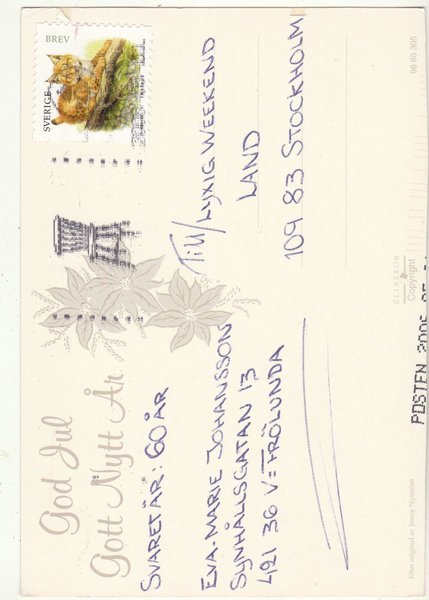 God Jul
Gott Nytt År
SVARET ÄR: 60 ÅR
EVA-MARIE JOHANSSON
SYNHÅLLSGATAN 13
421 36 V=FRÖLUNDA
SVERIGE
BREV
Till/LYXIG WEEKEND
LAND
109 83 STOCKHOLM
98 65 305
ELIASSON
Copyright
POSTEN
Efter original av Jenny Nyström